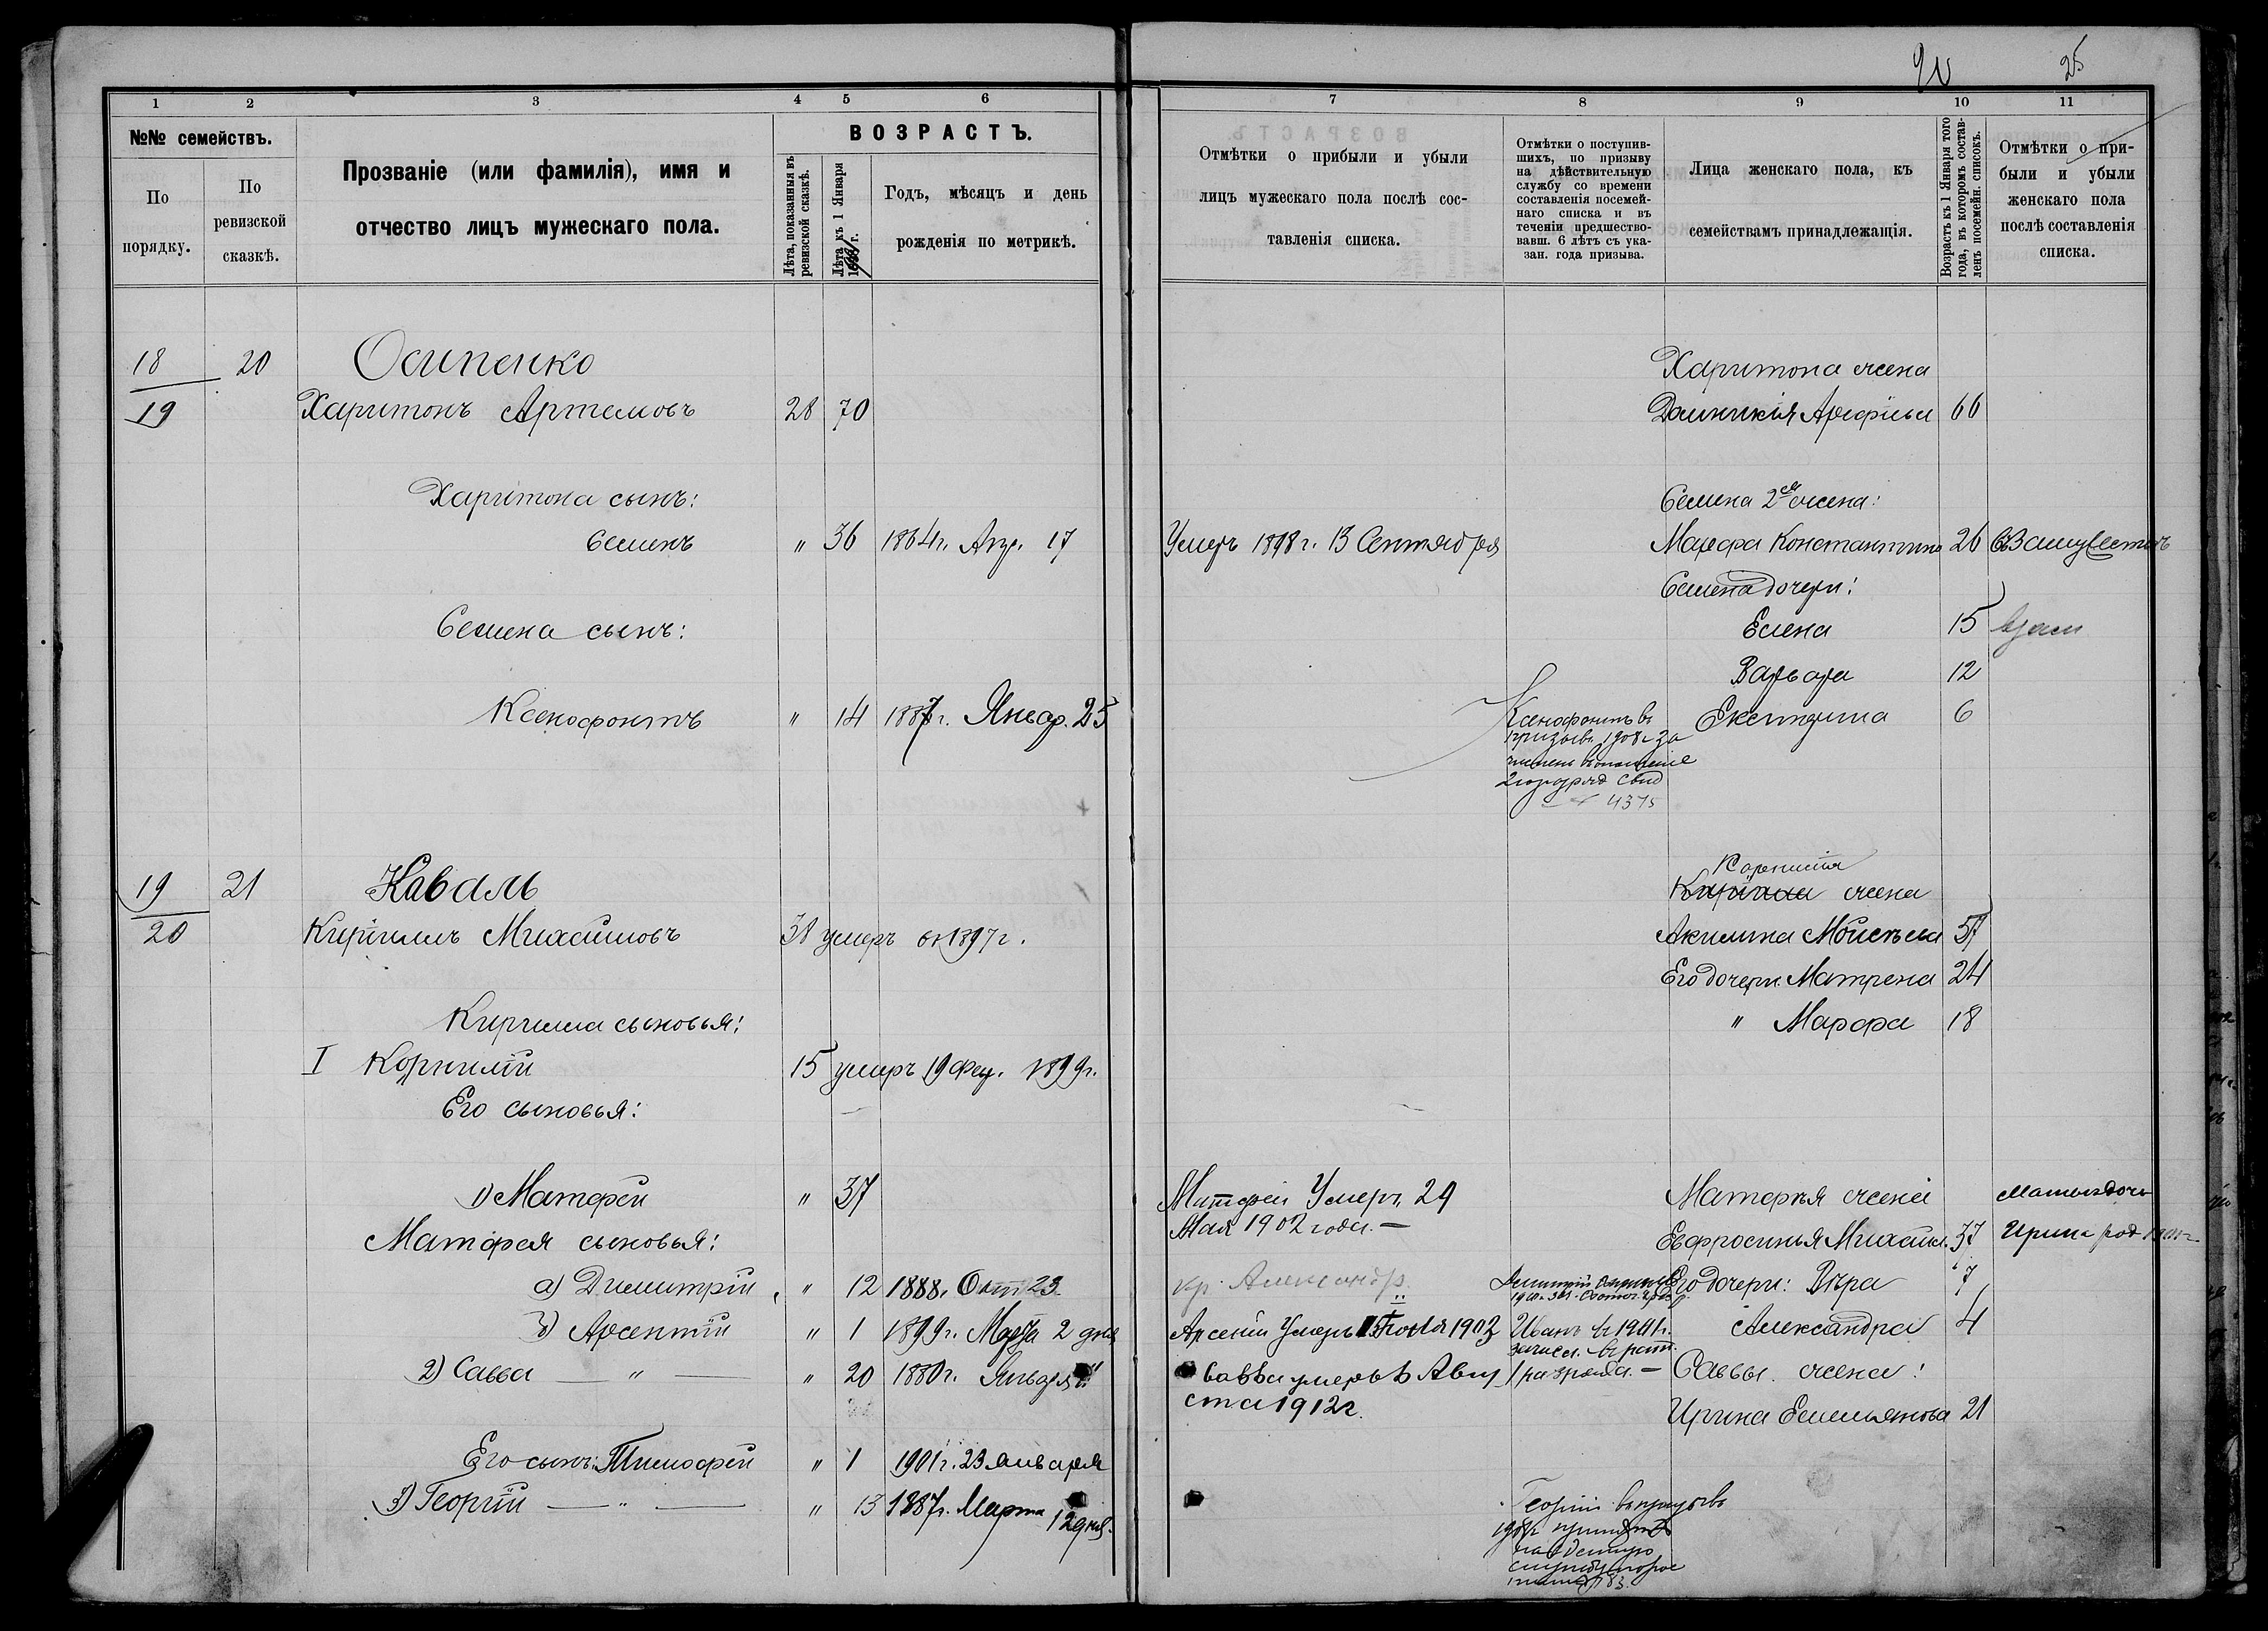 25
1 2 3 4 5 6
№№ семействъ.
По порядку.
По ревизской сказкѣ.
Прозваніе (или фамилія), имя и
отчество лицъ мужескаго пола.
ВОЗРАСТЪ.
Лѣта, показанныя въ ревизской сказкѣ.
Лѣта къ 1 Января г.
Годъ, мѣсяцъ и день
рожденія по метрикѣ.
18 20 Осипенко
19 Харитонъ Артемовъ 28 70
Харитона сынъ:
Семенъ " 36 1864 г. Апр. 17
Семена сынъ:
Ксенофонтъ " 14 1887 г. Январ. 25
19 21 Каваль
20 Кириллъ Михайловъ 38 умеръ 1897 г.
Кирилла сыновья:
I Корнилій 15 умеръ 19 Фев. 1899 г.
Его сыновья:
1) Матфей " 37
Матфея сыновья:
а) Димитрій " 12 1888. Окт 23
б) Арсентій " 1 1899 г. Марта 2 дня
2) Савва — " — " 20 1880 г. Января
Его сынъ: Тимофей " 1 1901 г. 23 января
3) Георгій — " — " 13 1887 г. Марта 12 дня.
7 8 9 10 11
Отмѣтки о прибыли и убыли
лицъ мужескаго пола послѣ сос-
тавленія списка.
Отмѣтки о поступив-
шихъ, по призыву
на дѣйствительную
службу со времени
составленія посемей-
наго списка и въ
теченіи предшество-
вавш. 6 лѣтъ съ ука-
зан. года призыва.
Лица женскаго пола, къ
семействамъ принадлежащія.
Возрастъ къ 1 Января того
года, въ которомъ состав-
ленъ посемейн. списокъ.
Отмѣтки о при-
были и убыли
женскаго пола
послѣ составленія
списка.
Харитона жена
Домникія Арефьева 66
Семена 2ая жена:
Умеръ 1898 г. 13 Сентября Марфа Константин 26
Семена дочери:
Елена 15
Варвара 12
Ксенофонтъ въ Екатерина 6
призывъ 1908 г. за
численъ въ ополченіе
2го разряд Свид
4375
Корнилія
жена
Акилина Моисѣева 57
Его дочери: Матрена 24
" Марфа 18
Матфей Умеръ 29 Матфея жена
Мая 1902 года. —
Евфросинья Михайл. 37 Ирина род
кр. Александр. Его дочери: Вѣра 7
Арсеній Умеръ 1903 Иванъ въ 1911 г. Александра 4
зачисл. въ рат.
Савва умеръ Авгу 1 разряда. — Саввы жена:
ста 1912 г.
Ирина Емельянова 21
Георгій въ призывъ